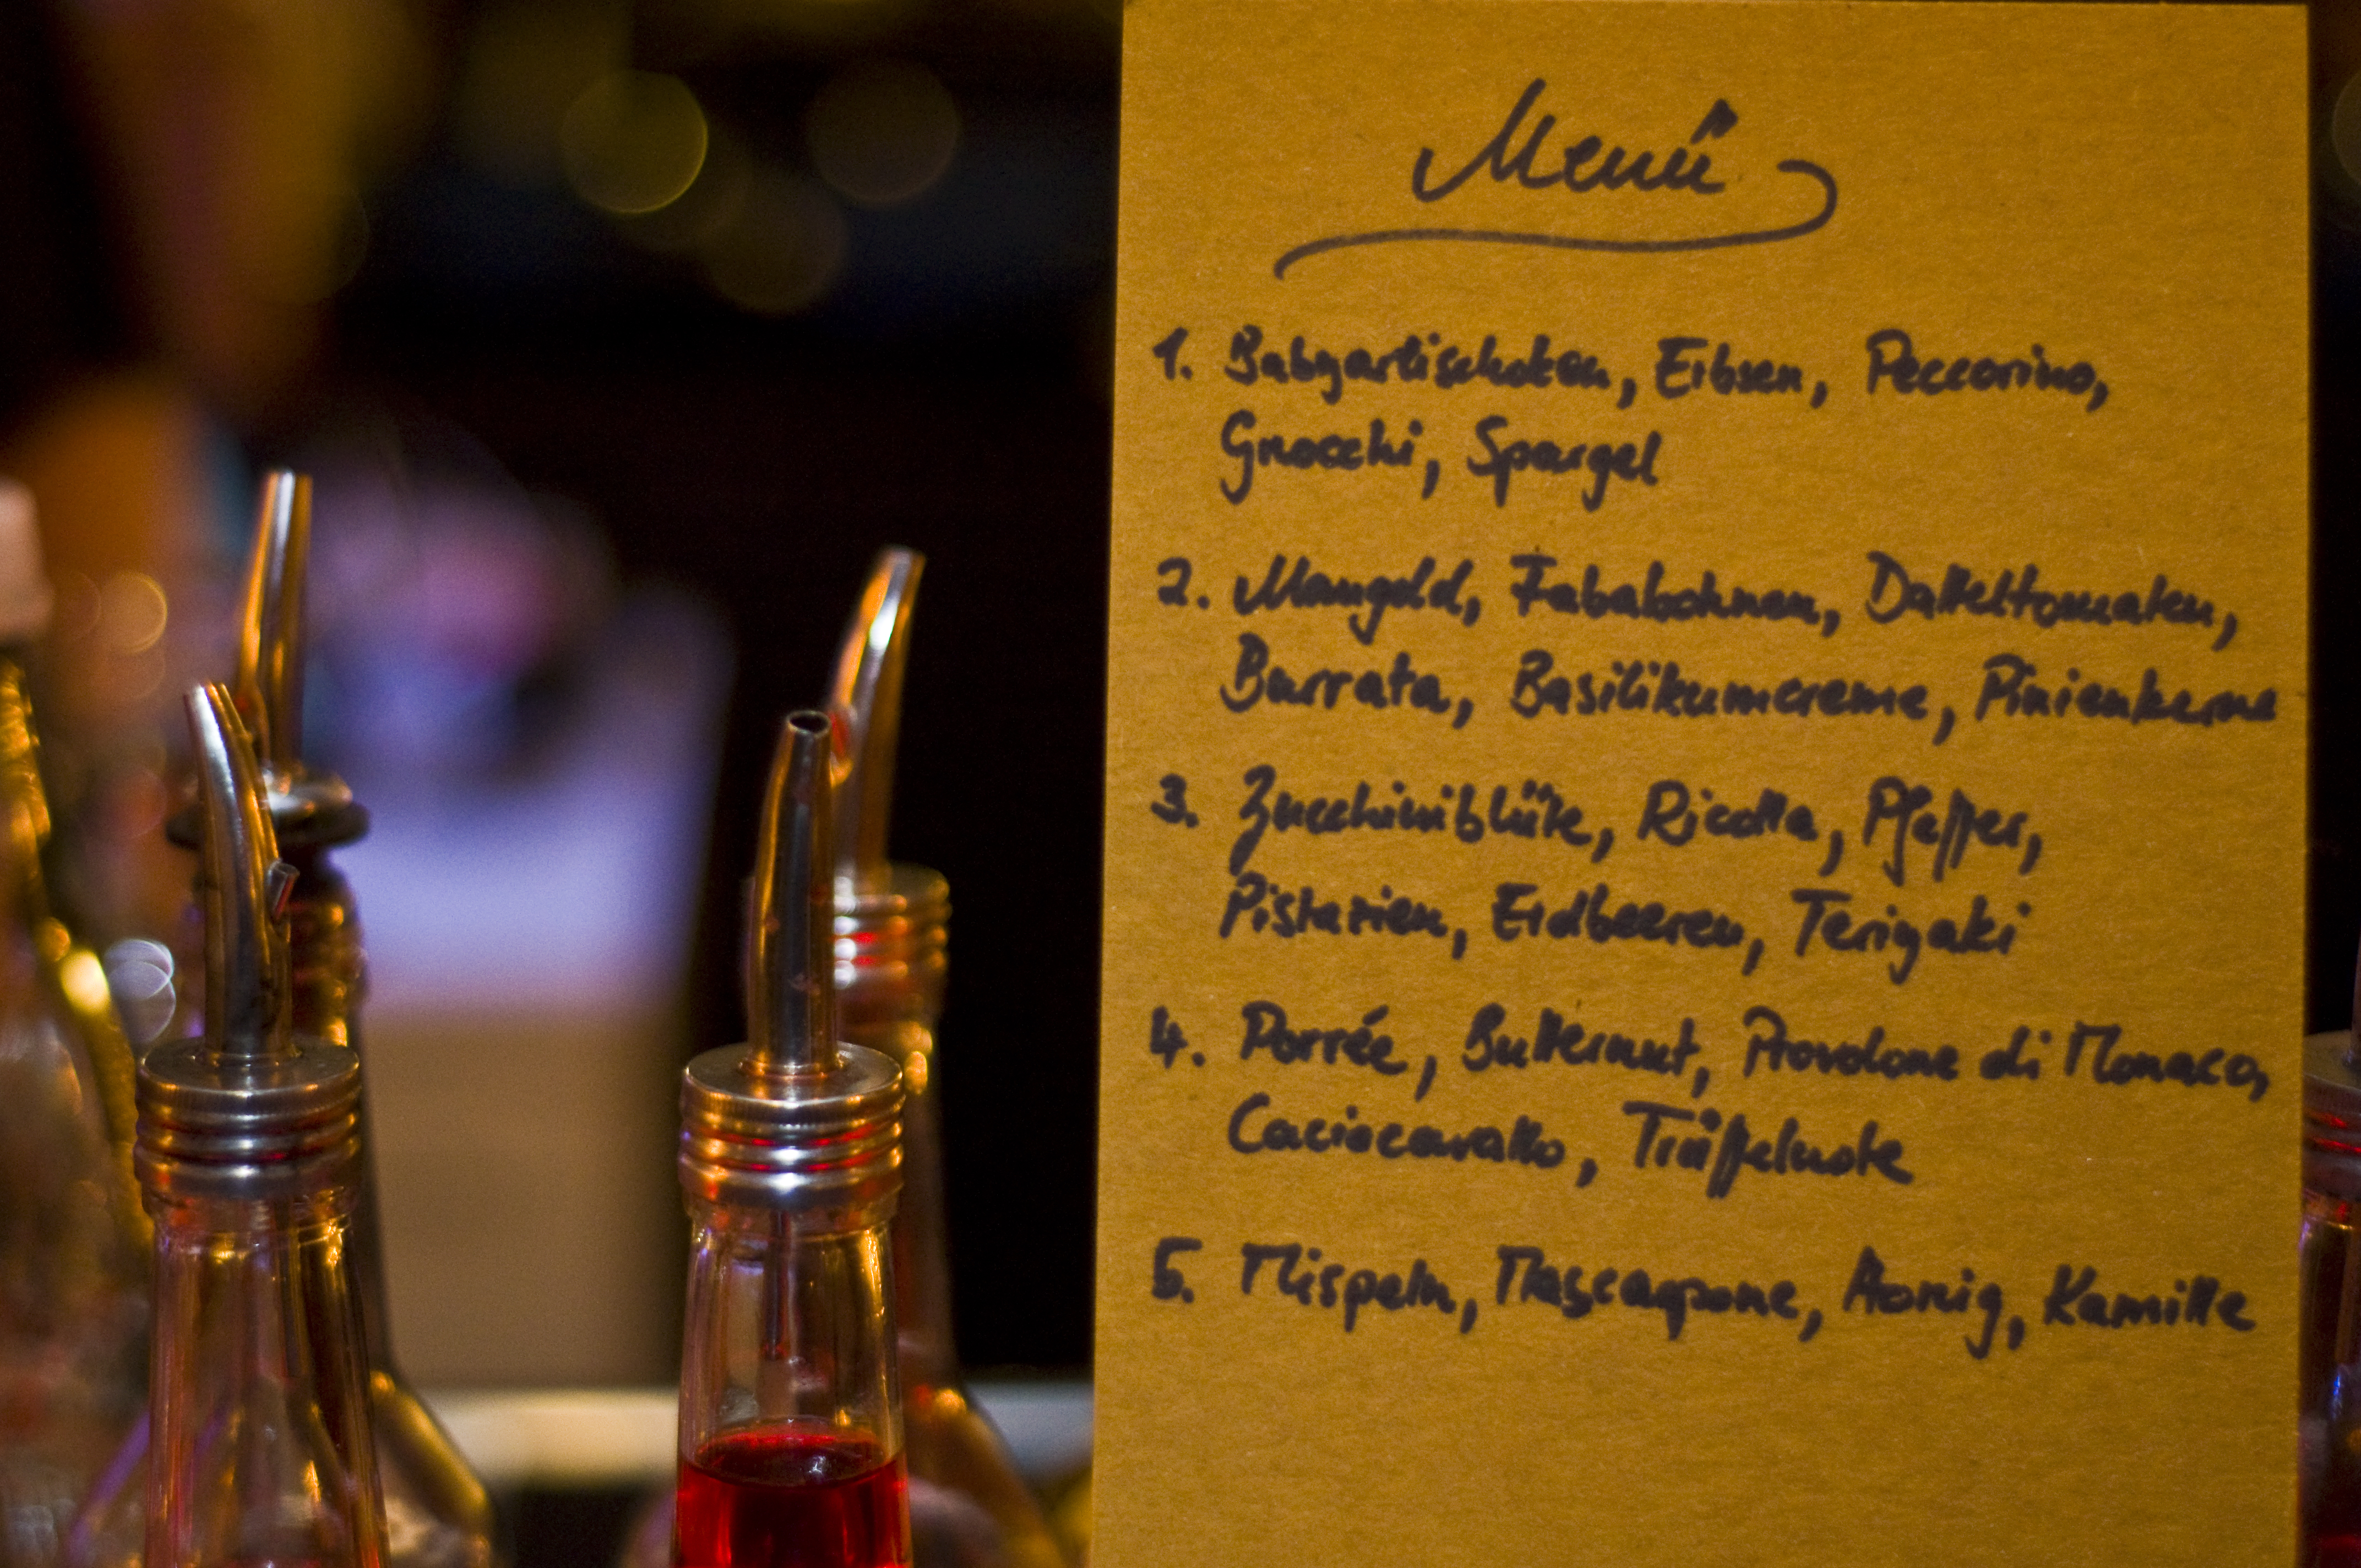 Menü
1. Babyartischoken, Erbsen, Peccorino,
Gnocchi, Spargel
2. Mangold, Fababohnen, Datteltomaten,
Burrata, Basilikumcreme, Pinienkerne
3. Zucchiniblüte, Ricotta, Pfeffer,
Pistazien, Erdbeeren, Teriyaki
4. Porrée, Butternut, Provolone di Monaco,
Caciocavallo, Trüffelnote
5. Mispeln, Mascarpone, Honig, Kamille